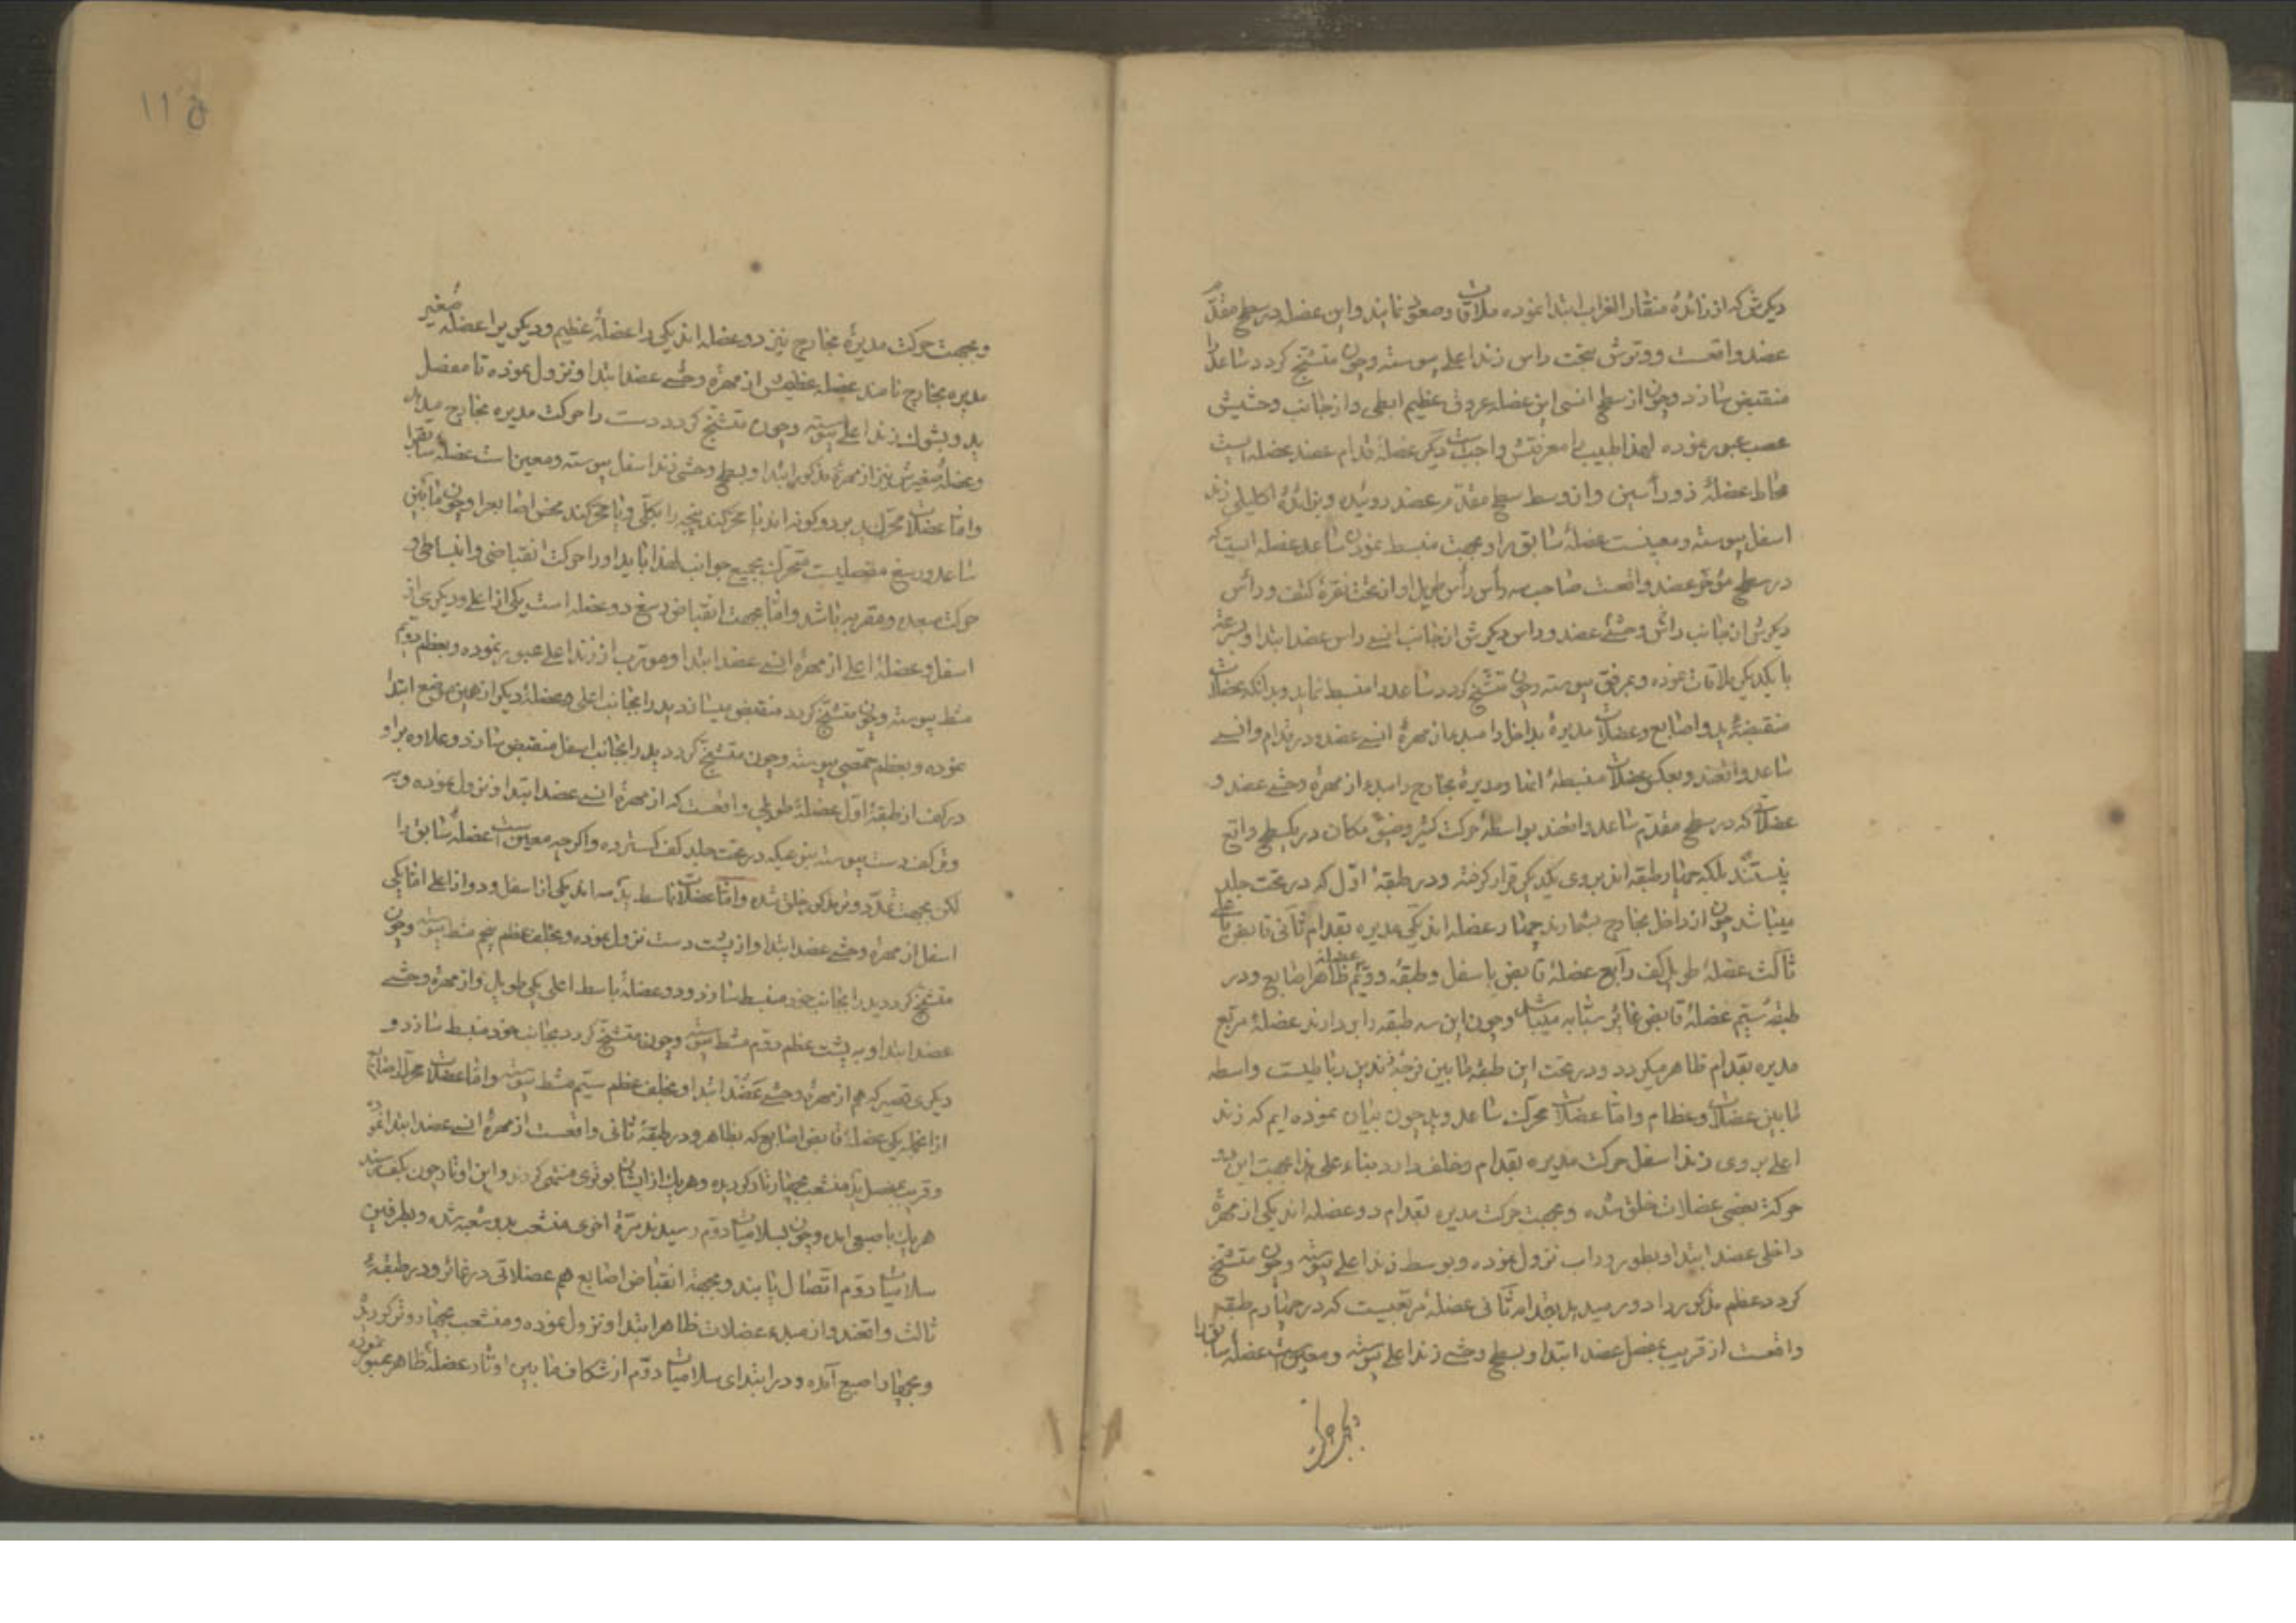 دیکرش که از زائدهٔ منقار الغراب ابتدا نموده ملاقات وصعق نمایند واین عضله در سطح مقدّم
عضد واقعست ووترش بتحت راس زند اعلی پیوسته وچون متشنّج کردد ساعد را
منقبض سازد وچون از سطح انسی این عضله عروق عظیم ابطی واز جانب وحشیش
عصب عبور نموده لهذا طبیب را معرفتش واجبست دیکر عضلهٔ قدام عضد عضله ایست
محاط عضلهٔ ذو رأسین واز وسط سطح مقدّم عضد روئیده وبزائدهٔ اکلیلی زند
اسفل پیوسته ومعینست عضلهٔ سابق را وبجهت منبسط نمودن ساعد عضله ایست که
در سطح مؤخّر عضد واقعست صاحب سه رأس رأس طویل او از تحت نقرهٔ کتف ورأس
دیکرش از جانب راس وحشئ عضد وراس دیکرش از جانب انسی راس عضد ابتدا وبسرعة
با یکدیکر ملاقات نموده وبمرفق پیوسته وچون متشنّج کردد ساعد را منبسط نماید وبدانکه عضلات
منقبضهٔ ید واصابع وعضلات مدیرهٔ بداخل را مبدء از مهرهٔ انسی عضد ودر قدام وانسی
ساعد واقعند وبعکس عضلات منبسطهٔ انها ومدیرهٔ بخارج را مبدء از مهرهٔ وحشی عضد و
عضلات که در سطح مقدّم ساعد واقعند بواسطهٔ حرکت کثیر وضیق مکان در یک سطح واقع
نیستند بلکه چهار طبقه اند بر روی یکدیکر قرار کرفته ودر طبقهٔ اوّل که در تحت جلد
میباشد چون از داخل بخارج بشمارند چهار عضله اند یکی مدیره بقدام ثانی قابض باعلی
ثالث عضلهٔ طویل کف رابع عضلهٔ قابض باسفل وطبقهٔ دویّم عضلهٔ ظاهر اصابع ودر
طبقهٔ سیّم عضلهٔ قابض غائر سبابه میباشد وچون این سه طبقه را بردارند عضلهٔ مربّع
مدیره بقدام ظاهر میکردد ودر تحت این طبقه مابین فرجهٔ زندین رباطیست واسطه
مابین عضلات وعظام وامّا عضلات محرّک ساعد وید چون بیان نموده ایم که زند
اعلی بر روی زند اسفل حرکت مدیره بقدام وخلف دارد بناء علی هذا بجهت این دو
حرکة بعضی عضلات خلق شده وبجهت حرکت مدیره بقدام دو عضله اند یکی از مهرهٔ
داخلی عضد ابتدا وبطور وراب نزول نموده وبوسط زند اعلی پیوسته وچون متشنّج
کردد عظم مذکور را دور میدهد بقدام ثانی عضلهٔ مربّعیست که در چهارم طبقه
واقعست از قریب مفصل عضد ابتدا وبسطح وحشی زند اعلی پیوسته ومعین است عضلهٔ سابق را
۱۱۵
وبجهت حرکت مدیرهٔ بخارج نیز دو عضله اند یکی را عضلهٔ عظیم ودیکری را عضلهٔ صغیر
مدیره بخارج نامند عضلهٔ عظیمش از مهرهٔ وحشی عضد ابتدا ونزول نموده تا مفصل
ید وبشوک زند اعلی پیوسته وچون متشنّج کردد دست را حرکت مدیره بخارج میدهد
وعضلهٔ صغیرش نیز از مهرهٔ مذکور ابتدا وبسطح وحشی زند اسفل پیوسته ومعین است عضلهٔ سابق را
وامّا عضلات محرّک ید بر دو کونه اند یا محرکند پنجه را بکلّی ویا محرکند محض اصابع را وچون مابین
ساعد ورسغ مفصلیست متحرّک بجمیع جوانب لهذا باید او را حرکت انقباضی وانبساطی و
حرکت مبعده ومقربه باشد وامّا بجهت انقباض رسغ دو عضله است یکی از اعلی ودیکری از
اسفل وعضلهٔ اعلی از مهرهٔ انسی عضد ابتدا ومورّب از زند اعلی عبور نموده وبعظم دویّم
مشط پیوسته وچون متشنّج کردد منقبض میسازد ید را بجانب اعلی وعضلهٔ دیکر از همین موضع ابتدا
نموده وبعظم حمّصی پیوسته وچون متشنّج کردد ید را بجانب اسفل منقبض سازد وعلاوه بر او
در کف از طبقهٔ اوّل عضلهٔ طویلی واقعست که از مهرهٔ انسی عضد ابتدا ونزول نموده وبر
وتر کف دست پیوسته بنوعیکه در تحت جلد کف کسترده واکرچه معین است عضلهٔ سابق را
لکن بجهت تمدّد وتر مذکور خلق شده وامّا عضلات باسط ید سه اند یکی از اسفل ودو از اعلی امّا یکی
اسفل از مهرهٔ وحشی عضد ابتدا واز پشت دست نزول نموده وبخلف عظم پنجم مشط پیوسته وچون
متشنّج کردد ید را بجانب خود منبسط سازد ودو عضلهٔ باسط اعلی یکی طویل واز مهرهٔ وحشی
عضد ابتدا وبه پشت عظم دوّم مشط پیوسته وچون متشنّج کردد بجانب خود منبسط سازد و
دیکری قصیر که هم از مهرهٔ وحشی عضد ابتدا وبخلف عظم سیّم مشط پیوسته وامّا عضلات محرّک اصابع
از انجمله یکی عضلهٔ قابض اصابع که بظاهر ودر طبقهٔ ثانی واقعست از مهرهٔ انسی عضد ابتدا نموده
وقریب بمفصل ید منشعب بچهار تار کردیده وهریک از ایشان بوتری منتهی کردند واین اوتار چون بکف رسند
هریک باصبعی اید وچون بسلامیات دوّم رسیدند مرّة اخری منشعب بدو شعبه شده وبطرفین
سلامیات دوّم اتّصال یابند وبجهة انقباض اصابع هم عضلاتی در غائر ودر طبقهٔ
ثالث واقعند واز مبدء عضلات ظاهر ابتدا ونزول نموده ومنشعب بچهار وتر کردید
وبچهار اصبع آمده ودر ابتدای سلامیات دوّم از شکاف مابین اوتار عضلهٔ ظاهر عبور نموده